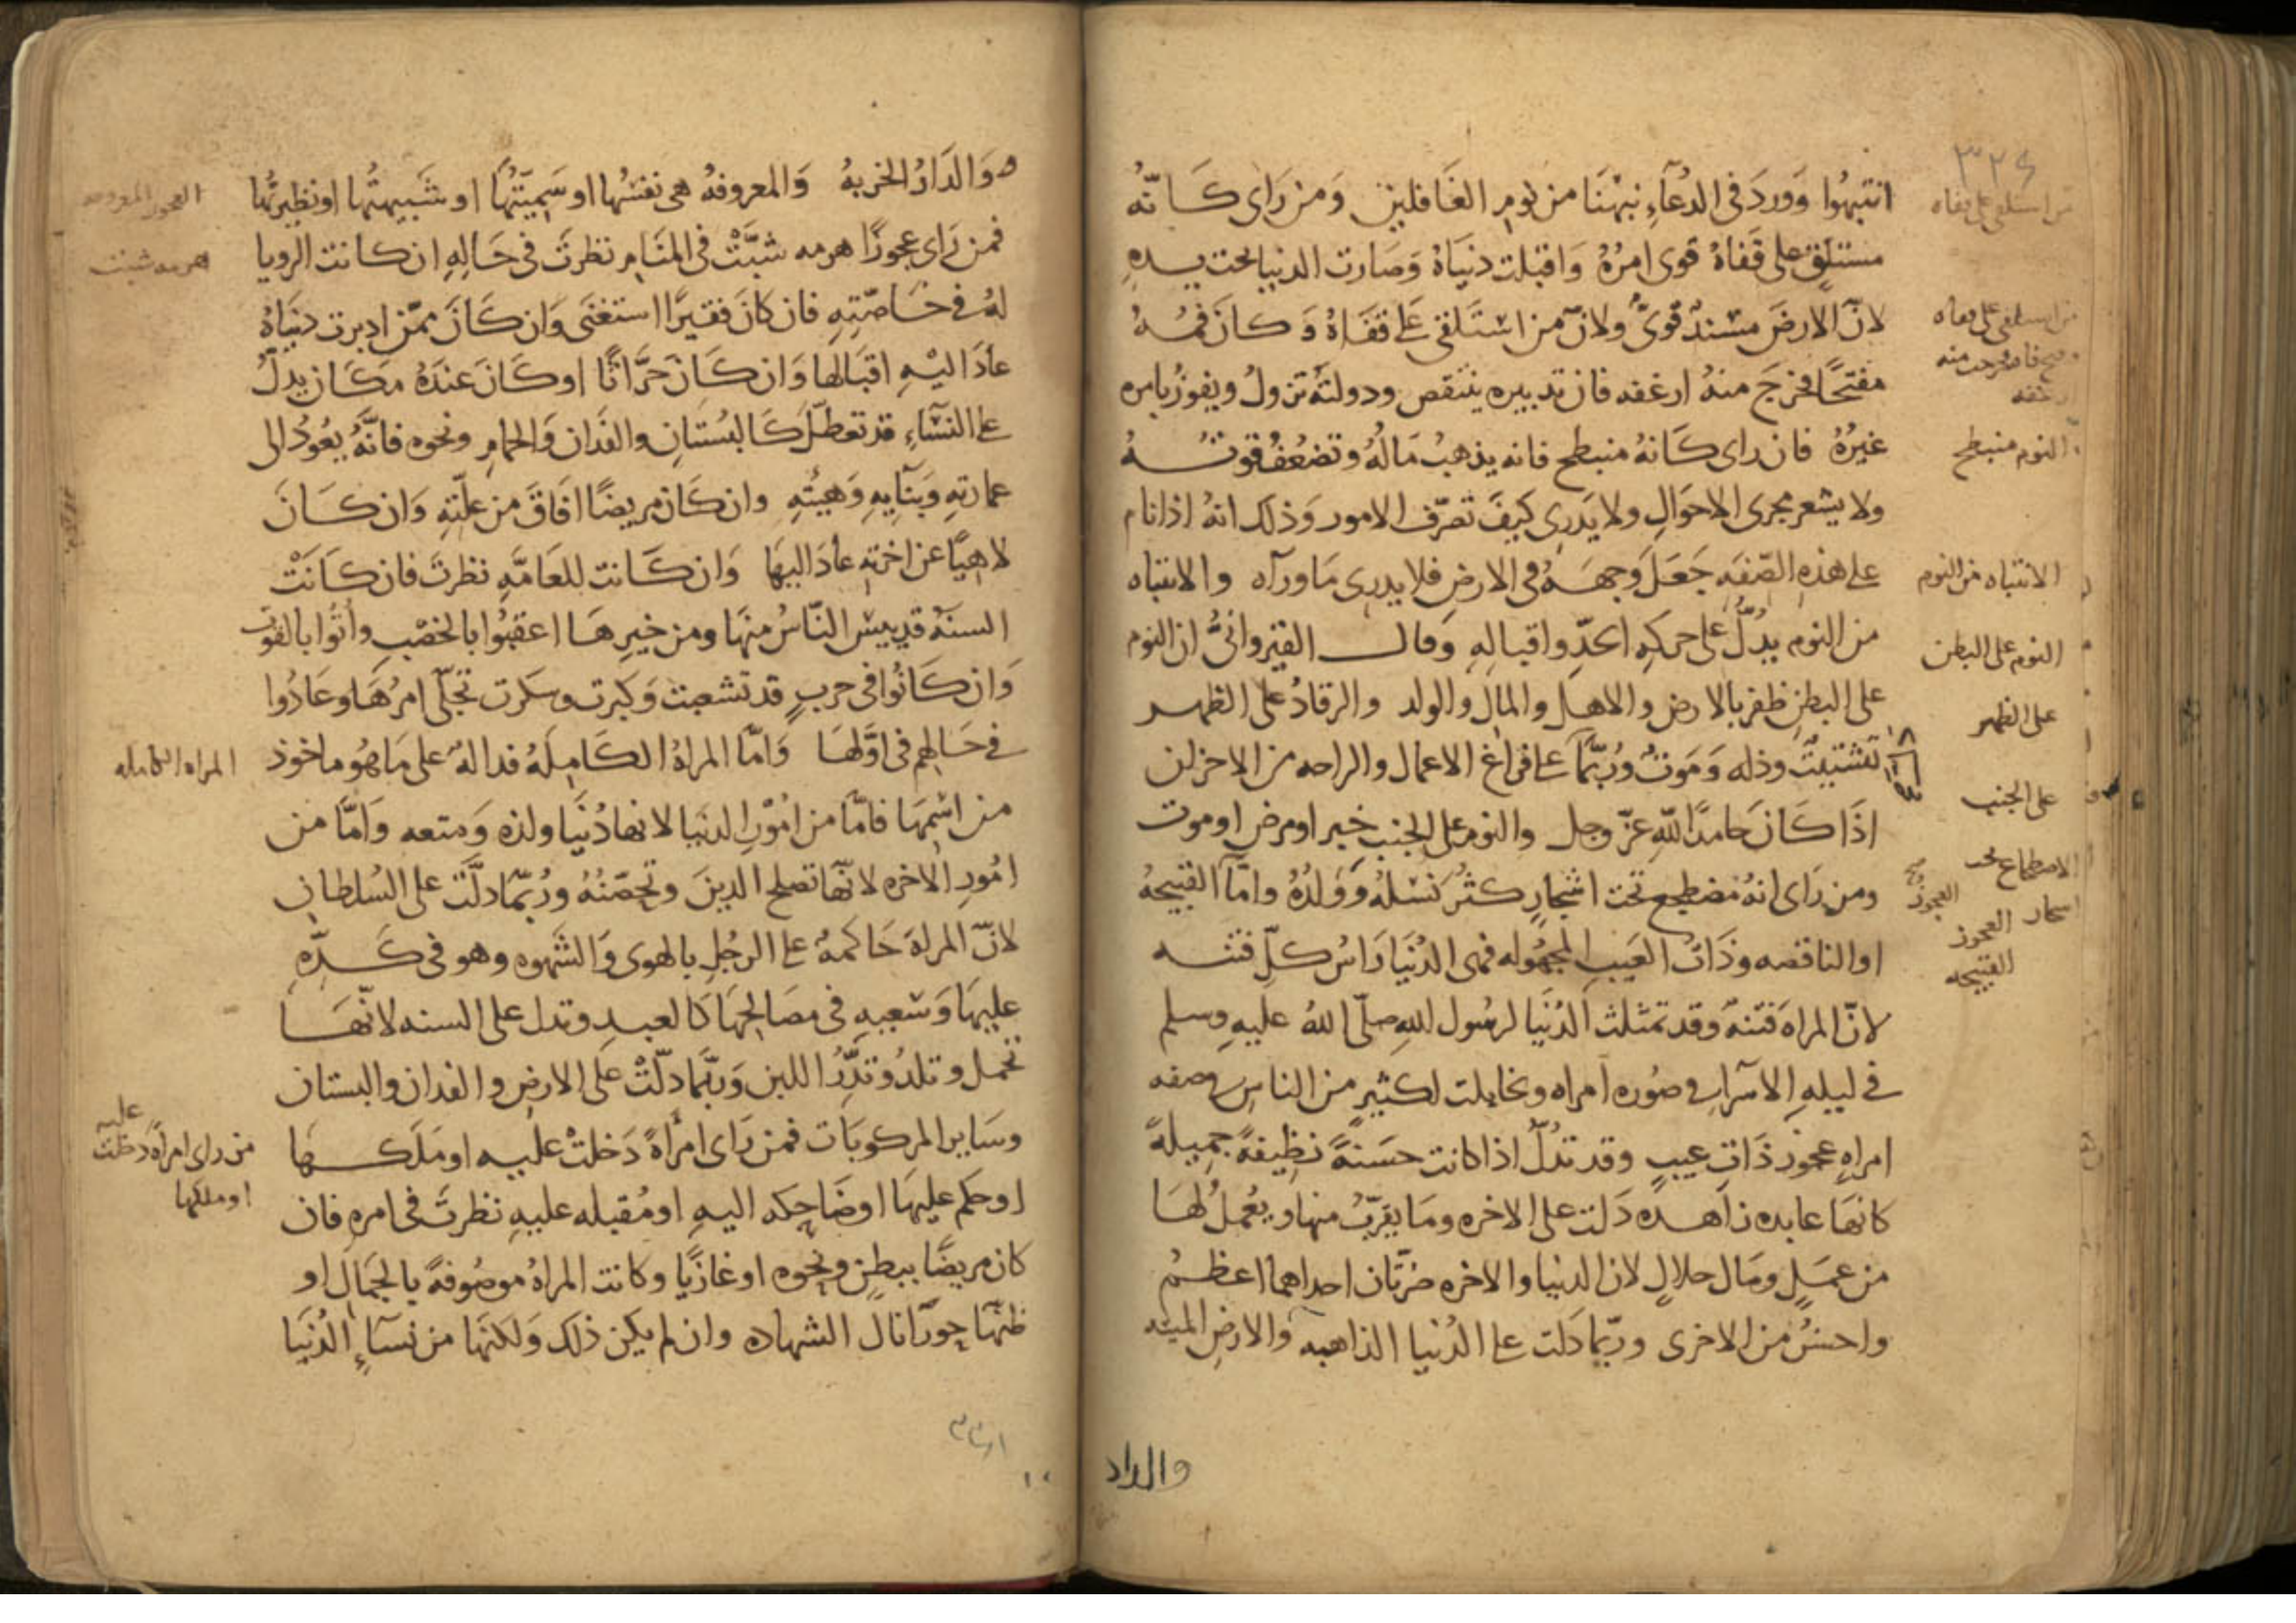 ٣٢٤
انتبهُوا وَوردَ في الدُعَآءِ نبهْنَا من نومِ الغَافلين وَمن رَاى كَانّهُ
مستلقٍ على قَفاهُ قوى امرُهُ وَاقبلت دنيَاهُ وَصَارت الدنيا تحت يده
لانّ الارضَ مسْندٌ قوىٌّ ولانّ من استَلقى على قفَاهُ وَكانَ فمُهُ
مفتحًا فخرجَ منهُ ارغفه فان تدبيره ينتقص ودولتهُ تزولُ ويفوزُ بامره
غيرُهُ فان راى كَانهُ منبطح فانه يذهبُ مَالهُ وتضعُفُ قوتهُ
ولا يشعر بمجرى الاحوَالِ ولا يَدرى كيفَ تصرّف الامور وَذلك انهُ اذا نام
على هذهِ الصّفَهِ جَعَلَ وَجههُ فى الارضِ فلا يدرى مَا ورآه والانتباه
من النوم يدُلُّ على حركهِ الجدّ واقبالِهِ وَقال القيروانىُّ ان النوم
على البطنِ ظفر بالارض والاهل والمالِ والولد والرقادُ على الظهر
تشتيتٌ وذله وَمَوتٌ ورُبّمَا على فراغ الاعمال والراحه من الاحزان
اذَا كَانَ حامدًا للّهِ عزّ وجل والنوم على الجنب خير او مرض او موت
ومن رَاى انهُ مضطجع تحت اشجارٍ كثُر نَسْلهُ وَوَلدُهُ وامَّا القبيحهُ
او الناقصه وذَاتُ العَيبِ المجهُوله فهى الدُنيَا رَاسُ كلّ فتنه
لانّ المراه فتنهٌ وقد تمثلت الدُنيَا لرسُول اللهِ صلّى اللهُ عليهِ وسلم
فى ليلهِ الاسرآءِ فى صُوره امراه وتخايلت لكثيرٍ من الناسِ فى صفه
امراهٍ عجوز ذَاتِ عيبٍ وقد تدُلّ اذا كانت حسَنهً نظِيفهً جميلهً
كانهَا عابده زاهده دَلت على الاخره ومَا يقرّبُ منها ويعُمل لهَا
من عمَلٍ ومَال حلالٍ لان الدنيا والاخره ضرّتان احداهما اعظمُ
واحسنُ من الاخرى وربّما دَلت على الدُنيا الذاهبه والارضِ الميته
والدار
من استلقى على قفاه
من استلقى على قفاه
النوم منبطح
الانتباه من النوم
النوم على البطن
على الظهر
على الجنب
الاضطجاع تحت
اشجار
العجوز
القبيحه
وَالدَارُ الخربهُ وَالمعروفهُ هى نفسُها او سَمِيّتُهَا او شَبيهتُها او نظيرتُها
فمن رَاى عجوزًا هرمه شبَّتْ فى المنَام نظرتَ فى حَالِهِ ان كانت الرويا
لهُ فى خَاصّتِهِ فان كانَ فقيرًا استغنَى وَان كَانَ ممّن ادبرت دنيَاهُ
عادَ اليْهِ اقبَالها وَان كَانَ حَرَّاثًا او كَانَ عندَهُ مكَان يدلُّ
على النسَآءِ قد تعطلَ كَالبُستَانِ والفدَان وَالحمامِ ونحوه فانّهُ يعُودُ الى
عمارتِهِ وَبنَآيِهِ وَهيئتِهِ وان كَان مريضًا افَاقَ من علّتِهِ وَان كَانَ
لاهِيًا عن اخرتهِ عَادَ اليهَا وَان كَانت للعَامّهِ نظرتَ فان كَانَتْ
السنهُ قد ييس النّاسُ منهَا ومن خيرِهَا اعقبُوا بالخصْبِ واتُوا بالقوت
وَان كَانُوا فى حربٍ قد تشعبت وَكبرت وسكرت تجلّى امرُهَا وعَادُوا
فى حَالِهِم فى اوّلهَا وَامّا المراهُ الكَامِلهُ فدالهٌ على مَا هُو ماخوذ
من اسْمهَا فامَّا من امُوْرِ الدنيَا لانها دُنيَا ولذه وَمتعه وَامَّا من
امُورِ الاخره لانّهَا تصلح الدينَ وتحصّنُهُ ورُبّمَا دلَّت على السُلطانِ
لانّ المراهَ حَاكمهٌ على الرجُلِ بالهوى وَالشهوه وهو فى كَدّهِ
عليهَا وَسَعيهِ فى مصَالحِهَا كَالعبدِ وتدل على السنه لانّهَا
تحمل وتلدُ وتَدُّرُ اللبن وَربّمَا دلّتْ على الارضِ والفدان والبستان
وسَاير المركوبَات فمن رَاى امرأهً دَخلتْ عليه او مَلكهَا
او حكم عليهَا او ضَاحِكه اليهِ او مُقبله عليهِ نظرتَ فى امرهِ فان
كان مريضًا ببطنٍ ونحوه او غازيًا وكانت المراهُ موصُوفهً بالجمَالِ او
ظنّهَا حورآ نالَ الشهاده وان لم يكن ذلك وَلكنّهَا من نسَآءِ الدُنيَا
العجوز المعروفه
هرمه شبت
المراه الكامله
من راى امرأه دخلت عليه
او ملكها